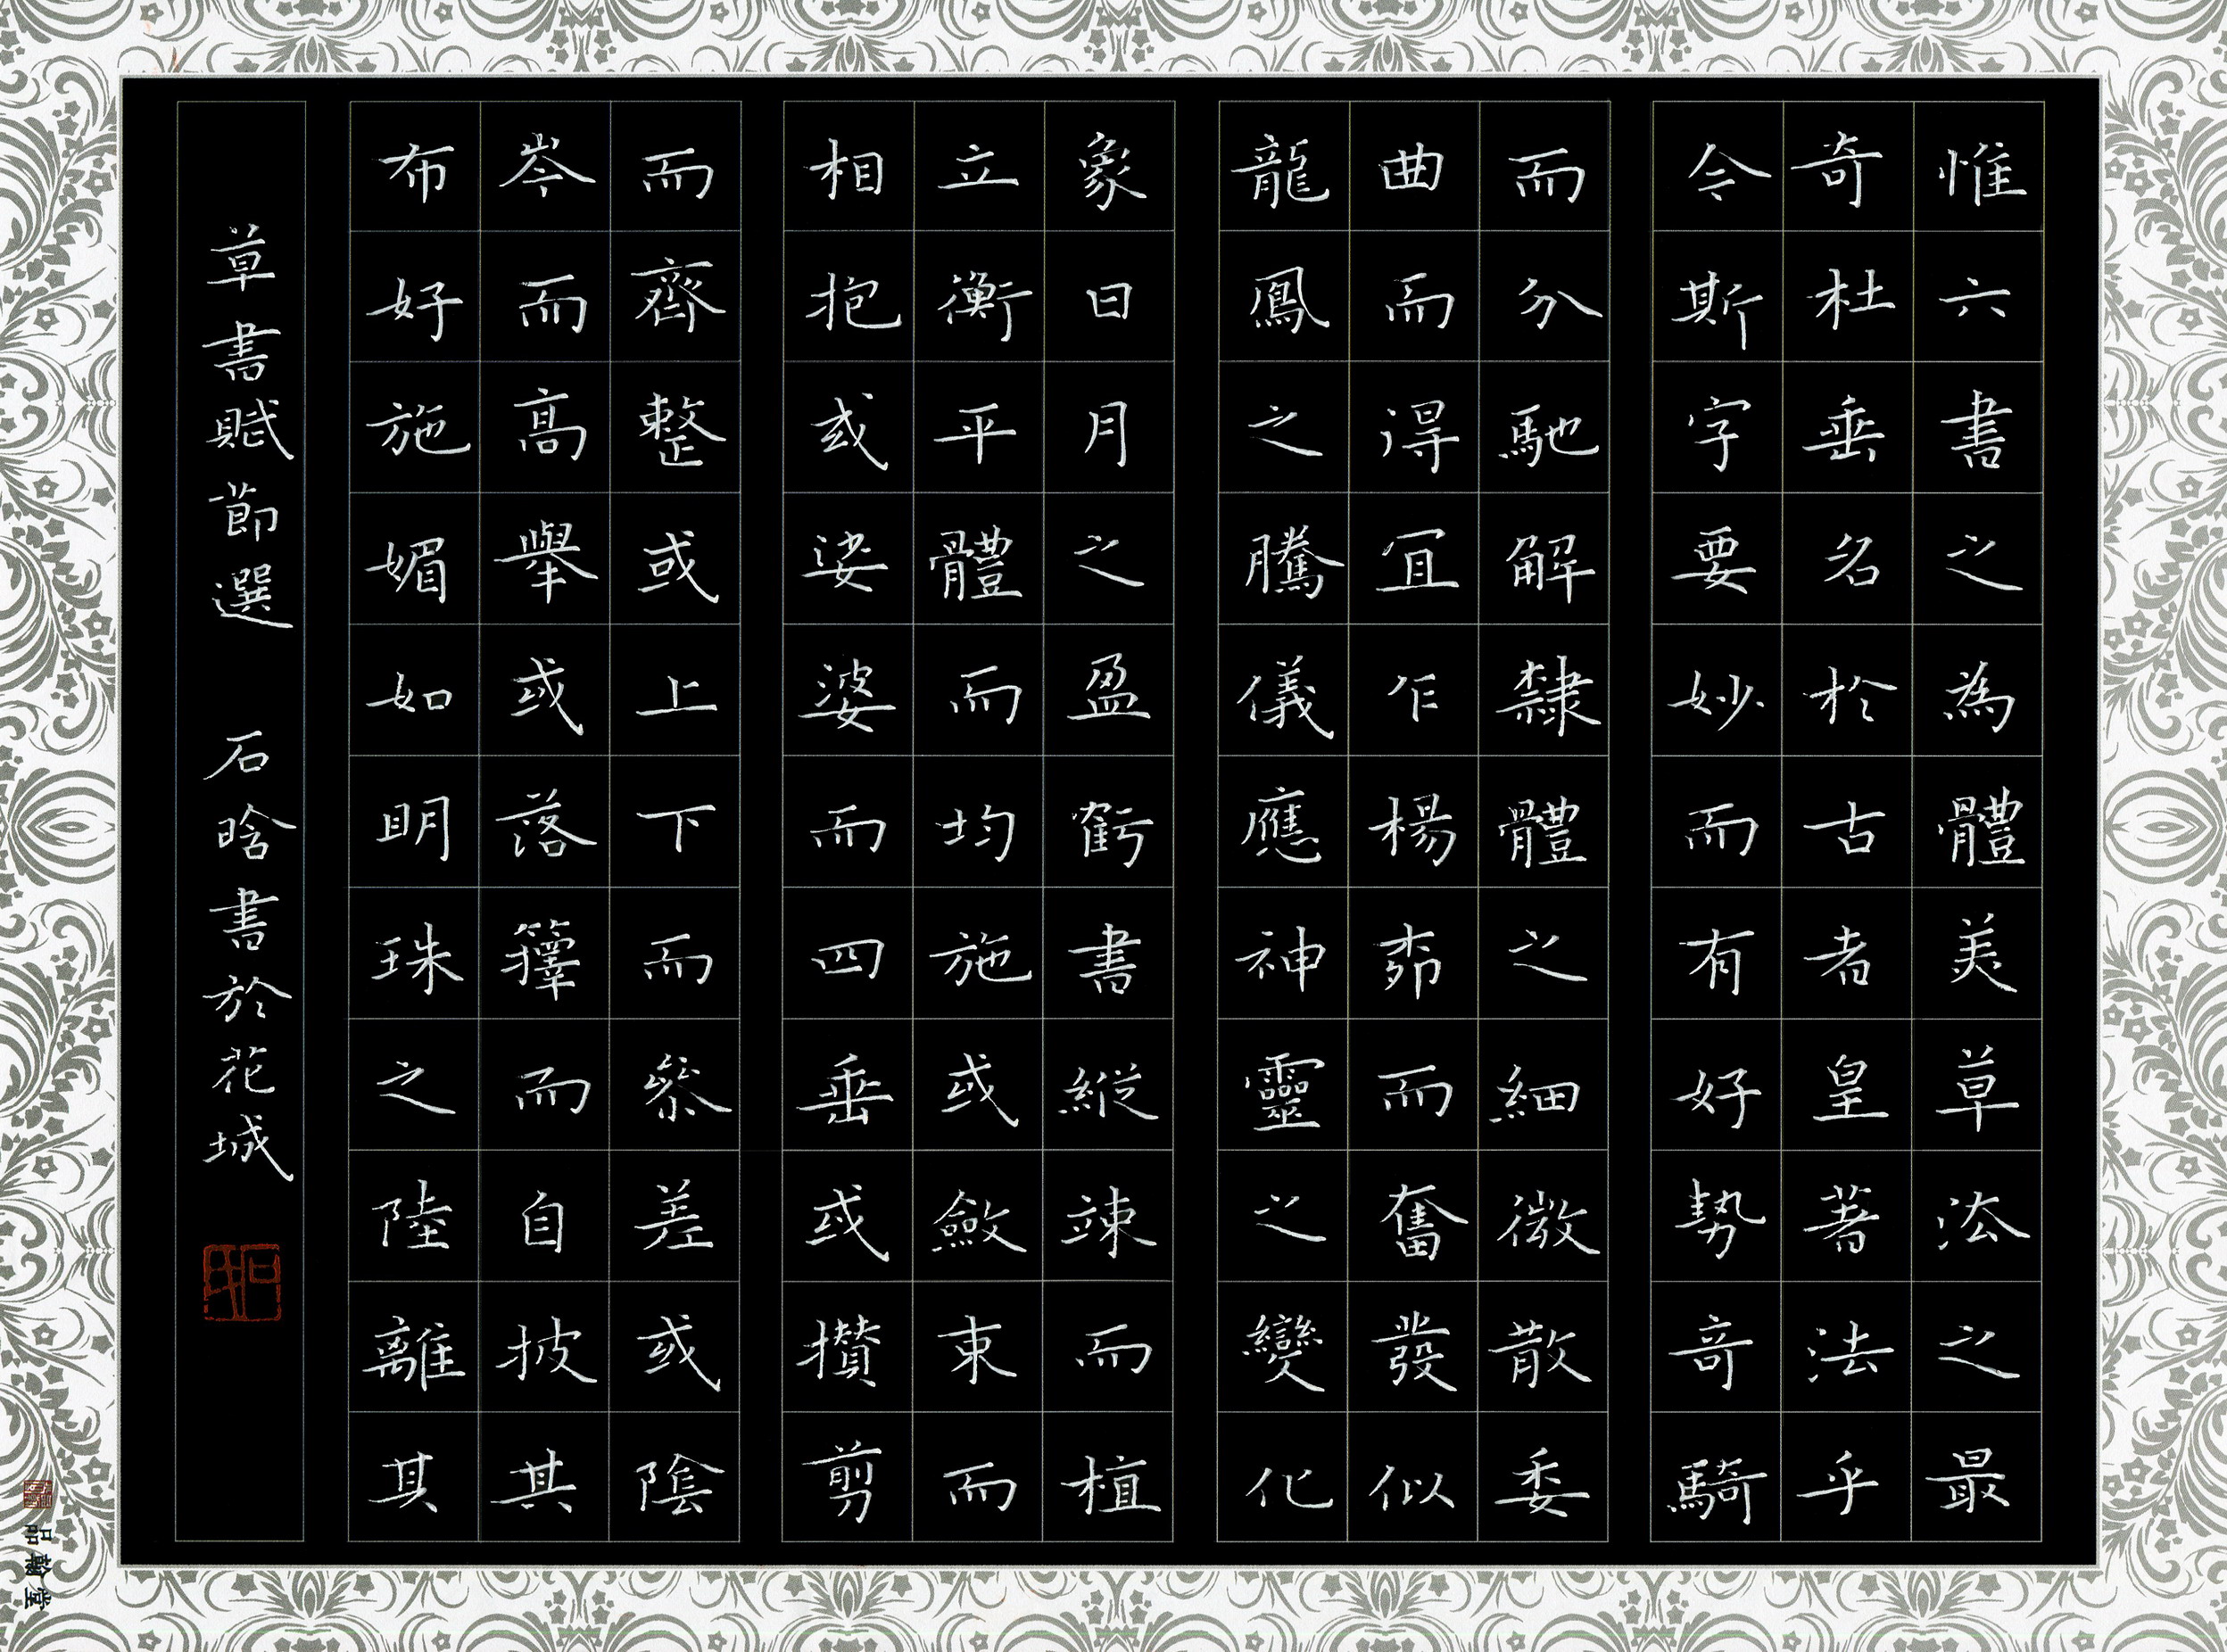 惟六書之為體美草法之最
奇杜垂名於古者皇著法乎
今斯字要妙而有好勢奇騎
而分馳解隸體之細微散委
曲而得宜乍楊柳而奮發似
龍鳳之騰儀應神靈之變化
象日月之盈虧書縱竦而植
立衡平體而均施或斂束而
相抱或婆娑而四垂或攢剪
而齊整或上下而參差或陰
岑而高舉或落籜而自披其
布好施媚如明珠之陸離其
草書賦節選 石晗書於花城
品翰堂